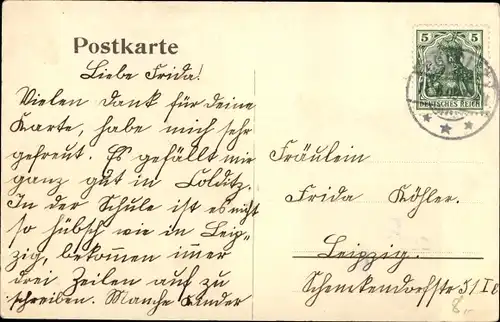 Postkarte
Liebe Frida!
Vielen Dank für deine
Karte, habe mich sehr
gefreut. Es gefällt mir
ganz gut in Colditz.
In der Schule ist es nicht
so hübsch wie in Leip=
zig, bekommen imer
drei Zeilen auf zu
schreiben. Manche Kinder
5 5
DEUTSCHES REICH
Fräulein
Frida Köhler.
Leipzig.
Schenkendorfstr 3/I
8,-